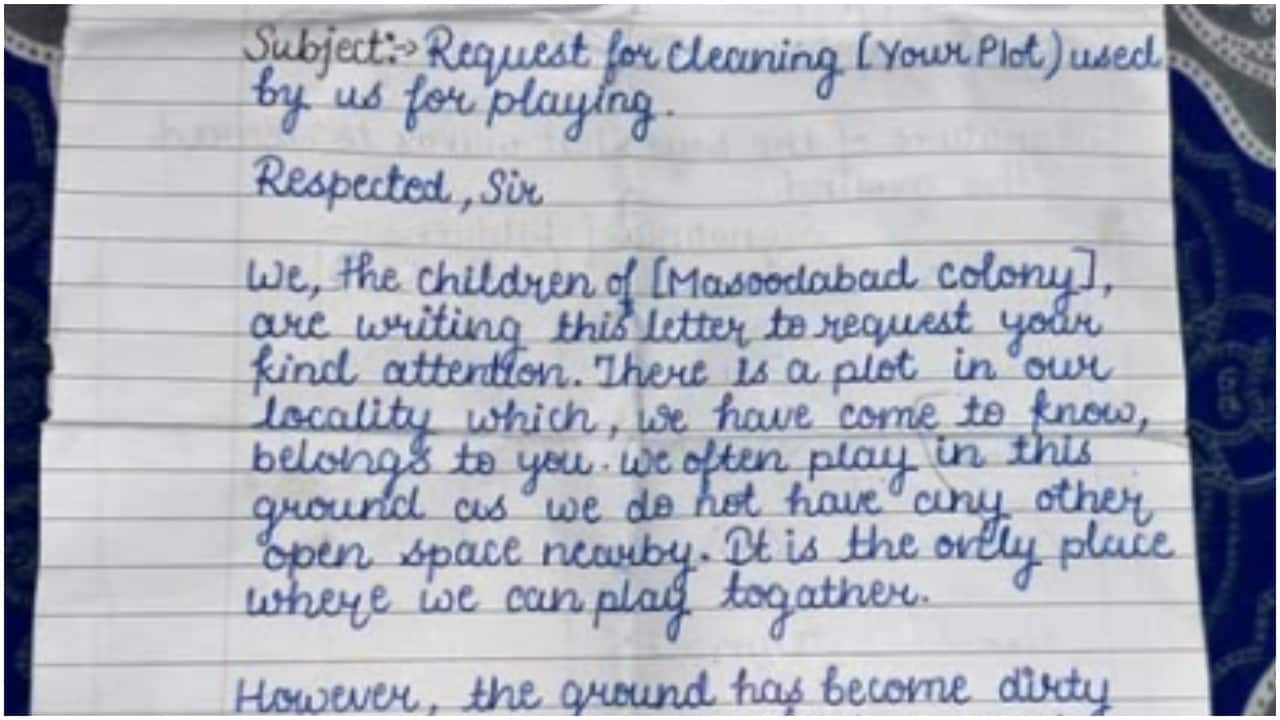 Subject:→ Request for cleaning [Your Plot) used
by us for playing.
Respected, Sir
We, the children of [Masoodabad colony],
are writing this letter to request your
kind attention. There is a plot in our
locality which, we have come to know,
belongs to you. we often play in this
ground as we do not have any other
open space nearby. It is the only place
where we can play togather.
However, the ground has become dirty